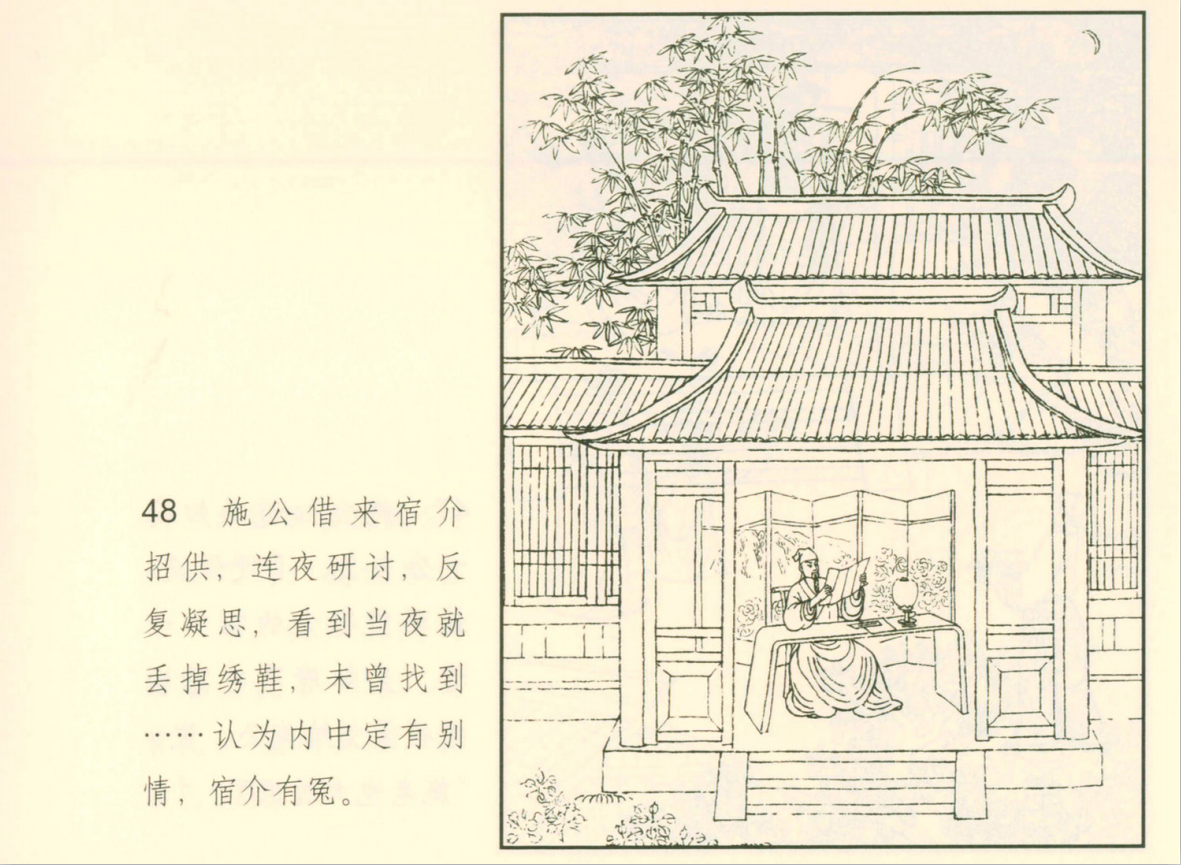 48 施公借来宿介
招供，连夜研讨，反
复凝思，看到当夜就
丢掉绣鞋，未曾找到
……认为内中定有别
情，宿介有冤。